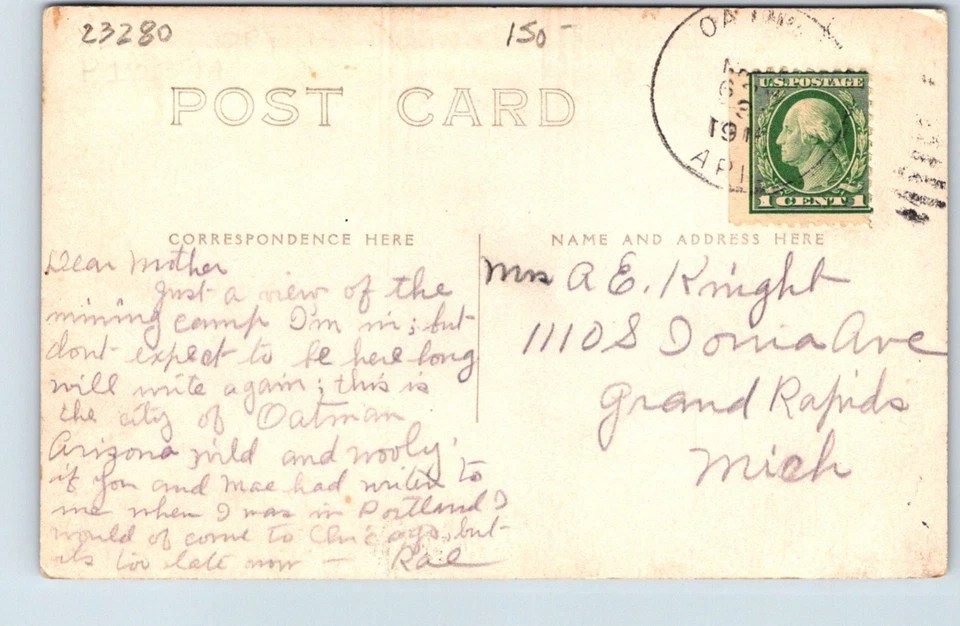 23280
150-
OATMAN
191
ARIZ
U.S. POSTAGE
1 CENT 1
POST CARD
CORRESPONDENCE HERE
NAME AND ADDRESS HERE
Dear Mother
Just a view of the
mining camp I'm in; but
dont expect to be here long
will write again; this is
the city of Oatman
Arizona wild and wooly;
if you and Mae had writen to
me when I was in Portland I
would of come to Chicago, but
its too late now - Rae
Mrs A E. Knight
1110 S Ionia Ave
Grand Rapids
Mich